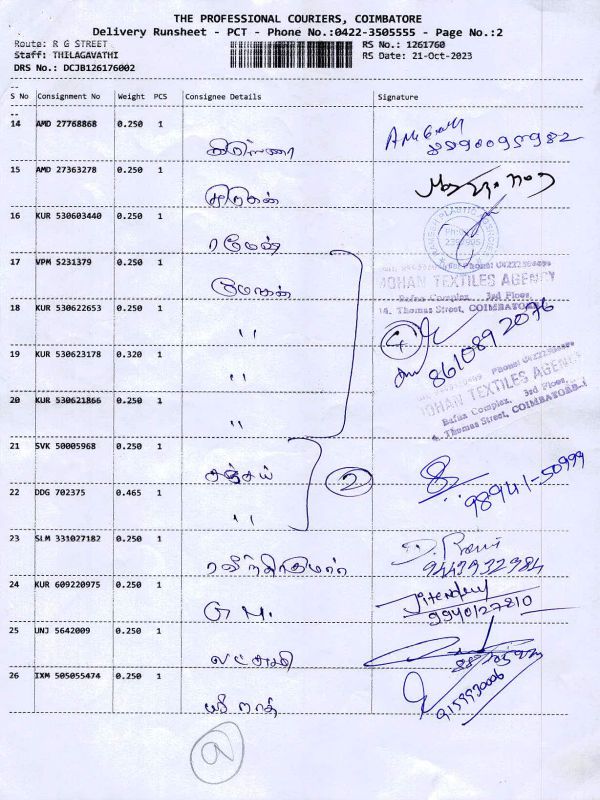 THE PROFESSIONAL COURIERS, COIMBATORE
Delivery Runsheet - PCT - Phone No.:0422-3505555 - Page No.:2
Route: R G STREET
RS No.: 1261760
Staff: THILAGAVATHI
RS Date: 21-Oct-2023
DRS No.: DCJB126176002
S No Consignment No Weight PCS Consignee Details Signature
14 AMD 27768868 0.250 1
15 AMD 27363278 0.250 1
முருகன்
16 KUR 530603440 0.250 1
ரமேஷ்
17 VPM 5231379 0.250 1
மோகன்
MOHAN TEXTILES AGENCY
Rafna Complex, 3rd Floor,
14, Thomas Street, COIMBATORE
18 KUR 530622653 0.250 1
"
4
8610892076
19 KUR 530623178 0.320 1
"
MOHAN TEXTILES AGENCY
Rafna Complex, 3rd Floor,
4, Thomas Street, COIMBATORE
20 KUR 530621866 0.250 1
"
21 SVK 50005968 0.250 1
சஞ்சய்
2
98941-50999
22 DDG 702375 0.465 1
"
23 SLM 331027182 0.250 1
ரவீந்திரகுமார்
9443932984
24 KUR 609220975 0.250 1
G M.
Jitendra
9940127810
25 UNJ 5642009 0.250 1
லட்சுமி
26 IXM 505055474 0.250 1
ஸ்ரீ நாத்
9159930006
9